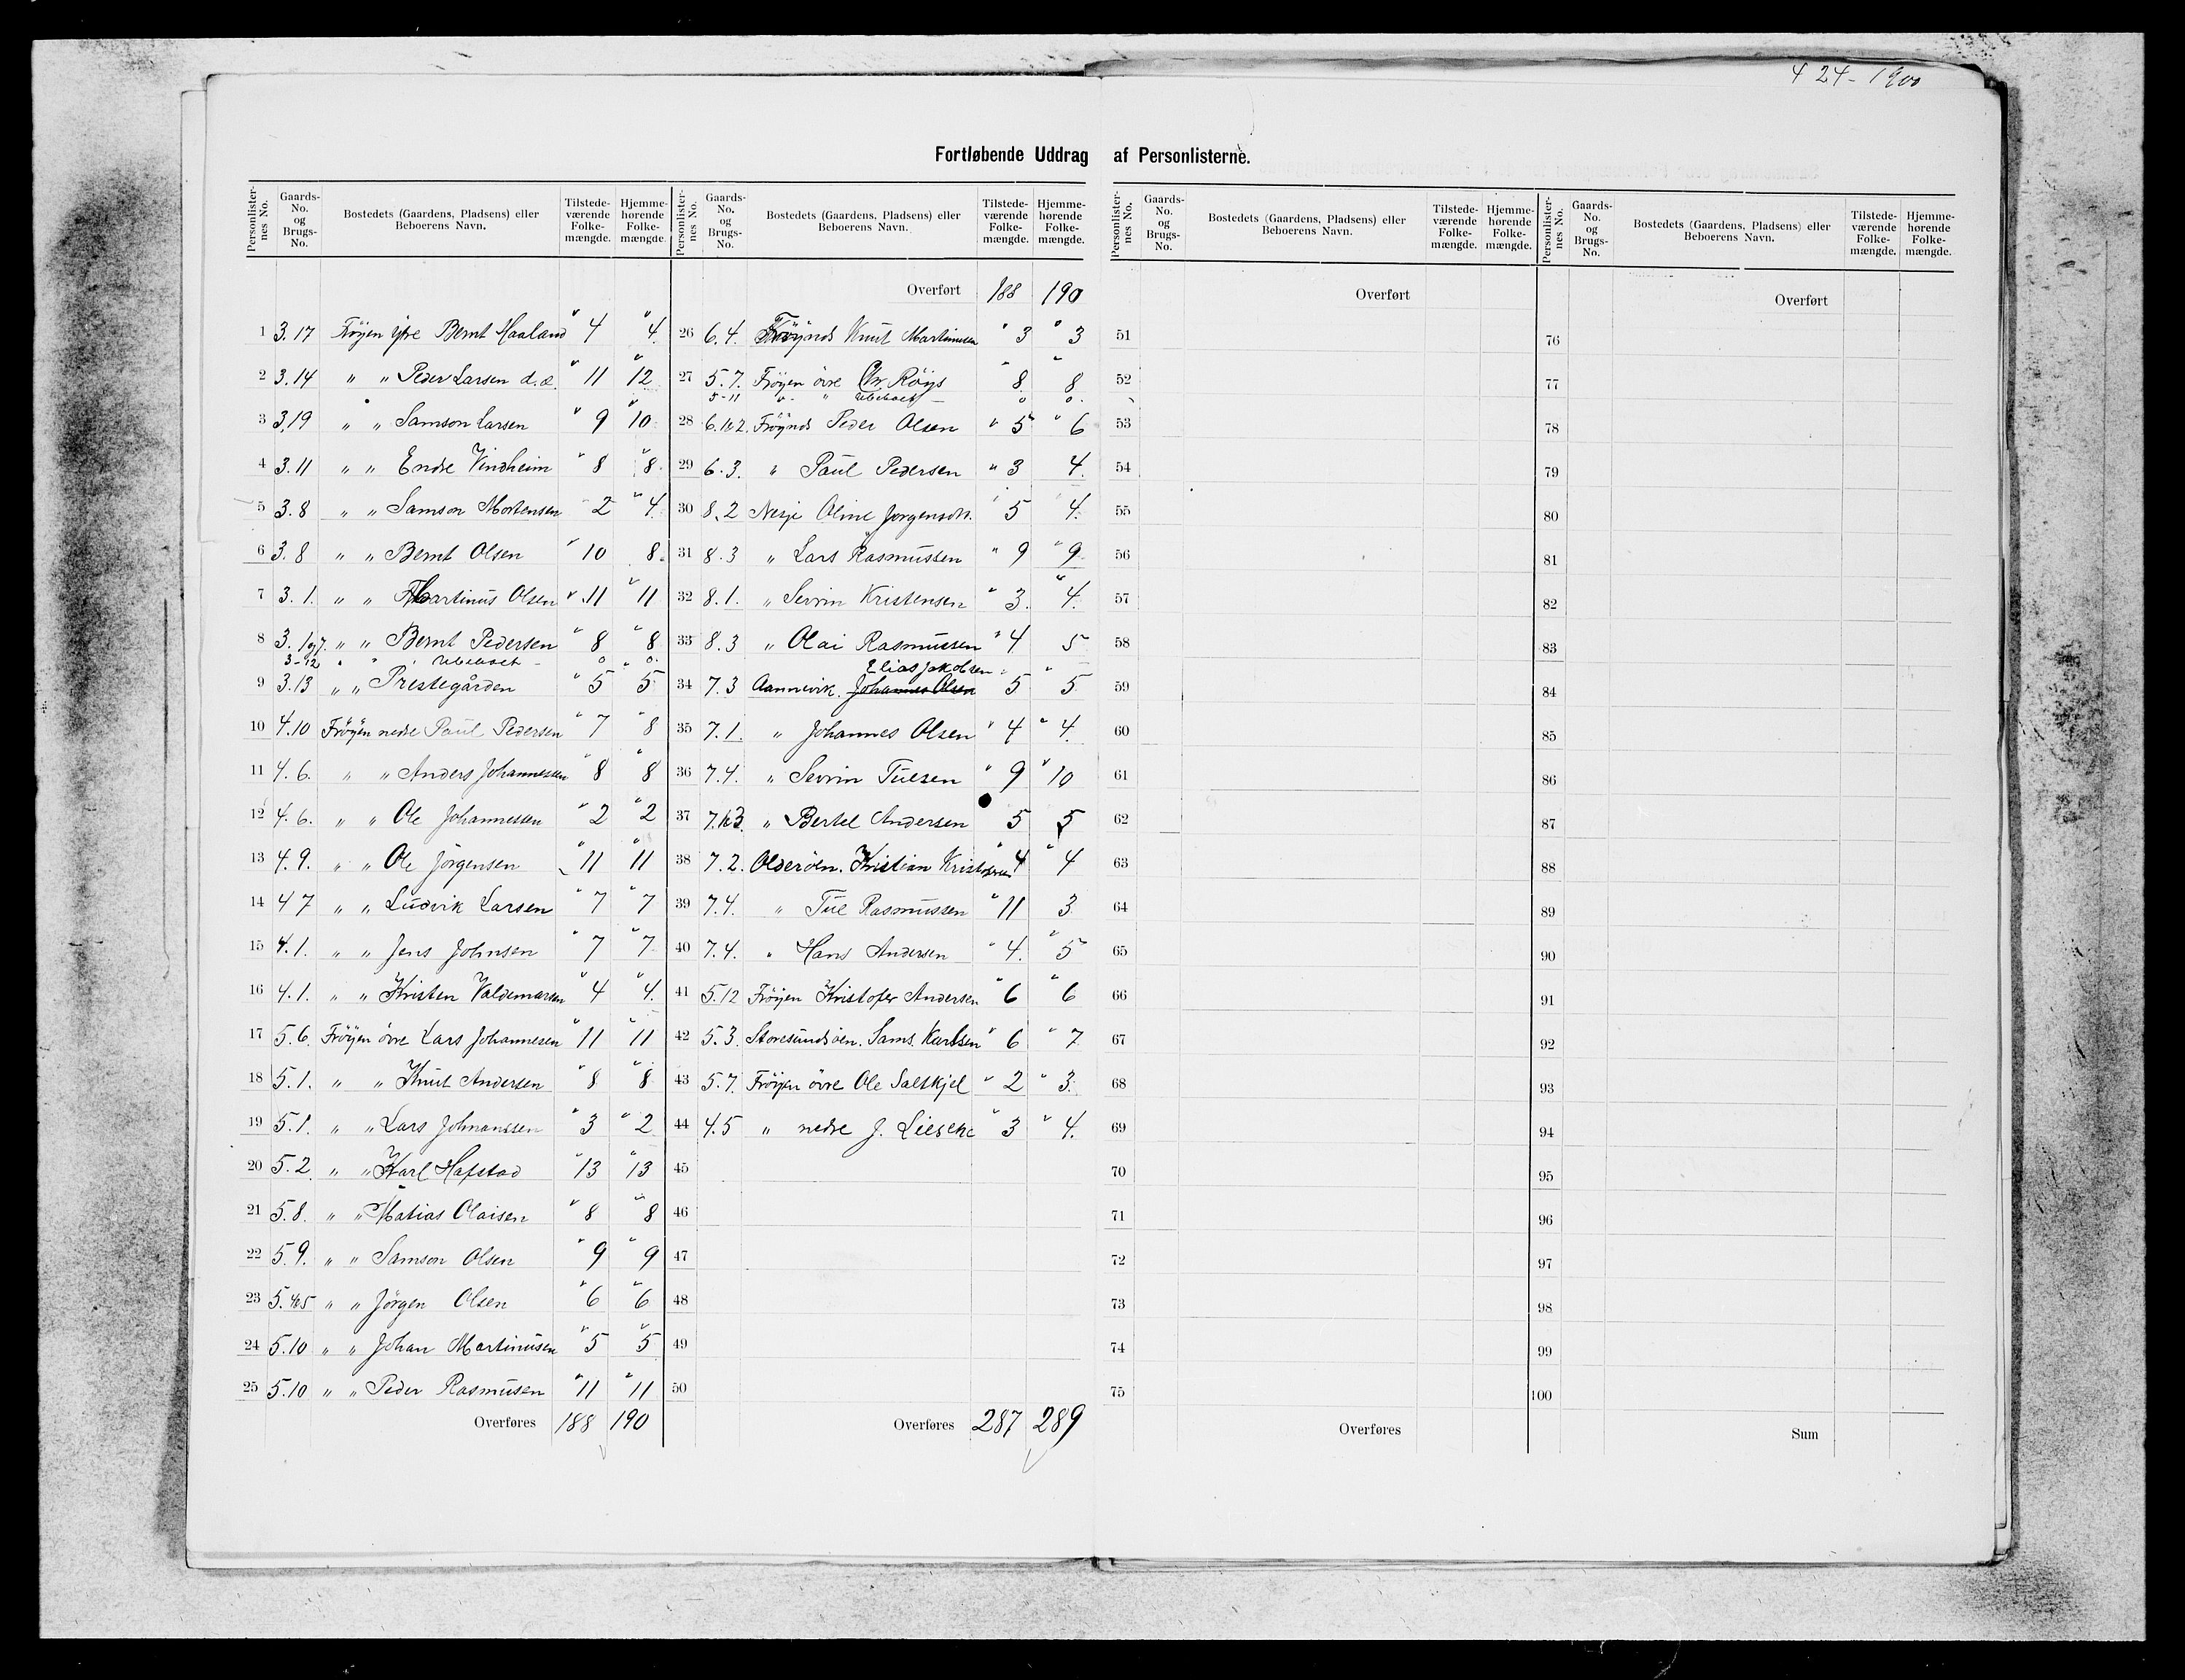 4 24 - 1900
Fortløbende Uddrag af Personlisterne.
Personlister-nes No. Gaards-No. og Brugs-No. Bostedets (Gaardens, Pladsens) eller Beboerens Navn. Tilstede-værende Folke-mængde. Hjemme-hørende Folke-mængde.
1 3.17 Frøyen ytre Bernt Haaland " 4 " 4.
2 3.14 " " Peder Larsen d.æ. " 11 " 12
3 3.19 " " Samson Larsen " 9 " 10
4 3.11 " " Endre Vindheim " 8 " 8
5 3.8 " " Samson Mortensen " 2 " 4.
6 3.8 " " Bernt Olsen " 10 8.
7 3.1. " " Martinus Olsen " 11 " 11
8 3.1og7. " " Bernt Pedersen " 8 " 8
3-12 " " Ubeboet - 0 " 0.
9 3.13 " " Prestegården " 5 5
10 4.10 Frøyen nedre Paul Pedersen " 7 " 8
11 4.6. " " Anders Johannessen " 8 " 8
12 4.6. " " Ole Johannessen " 2 " 2
13 4.9. " " Ole Jörgensen " 11 " 11
14 4 7 " " Ludvik Larsen " 7 " 7
15 4.1. " " Jens Johnsen " 7 " 7
16 4.1. " " Kristen Valdemarsen " 4 " 4.
17 5.6. Fröyen övre Lars Johannesen " 11 " 11
18 5.1. " " Knut Andersen " 8 " 8
19 5.1. " " Lars Johnanssen " 3 " 2
20 5.2. " " Karl Hafstad " 13 " 13
21 5.8. " " Matias Olaisen " 8 " 8
22 5.9. " " Samson Olsen " 9 " 9
23 5.4o5 " " Jörgen Olsen " 6 " 6
24 5.10 " " Johan Martinusen " 5 " 5
25 5.10 " " Peder Rasmusen " 11 " 11
Overføres 188 190
Personlister-nes No. Gaards-No. og Brugs-No. Bostedets (Gaardens, Pladsens) eller Beboerens Navn. Tilstede-værende Folke-mængde. Hjemme-hørende Folke-mængde.
Overført 188 190
26 6.4. Fröynds Knut Martinusen " 3 " 3
27 5.7. Fröyen övre Chr. Röys " 8 " 8
5-11 " " Ubeboet - 0 0.
28 6.1o2. Fröynds Peder Olsen " 5 " 6
29 6.3. " Paul Pedersen " 3 4.
30 8.2 Nesje Oline Jorgensdt. " 5 " 4.
31 8.3 " Lars Rasmussen " 9 " 9
32 8.1. " Sevrin Kristensen " 3. " 4.
33 8.3 " Olai Rasmussen " 4 5
Elias Jakobsen
34 7.3 Aannevik. Johannes Olsen 5 " 5
35 7.1. " Johannes Olsen " 4 " 4.
36 7.4. " Sevrin Tuesen " 9 " 10
37 7.1o3. " Bertel Andersen 5 5
38 7.2. Olderöen. Kristian Kristofersen " 4 " 4
39 7.4. " Tue Rasmussen " 11 3
40 7.4. " Hans Andersen " 4. " 5
41 5.12 Fröyen Kristofer Andersen " 6 " 6
42 5.3. Storesundsöen. Sams. Karlsen " 6 " 7
43 5.7. Fröyen övre Ole Saltkjel " 2 " 3.
44 4.5 " nedre J. Lieseke " 3 " 4.
45
46
47
48
49
50
Overføres 287 289
Personlister-nes No. Gaards-No. og Brugs-No. Bostedets (Gaardens, Pladsens) eller Beboerens Navn. Tilstede-værende Folke-mængde. Hjemme-hørende Folke-mængde.
Overført
51
52
53
54
55
56
57
58
59
60
61
62
63
64
65
66
67
68
69
70
71
72
73
74
75
Overføres
Personlister-nes No. Gaards-No. og Brugs-No. Bostedets (Gaardens, Pladsens) eller Beboerens Navn. Tilstede-værende Folke-mængde. Hjemme-hørende Folke-mængde.
Overført
76
77
78
79
80
81
82
83
84
85
86
87
88
89
90
91
92
93
94
95
96
97
98
99
100
Sum